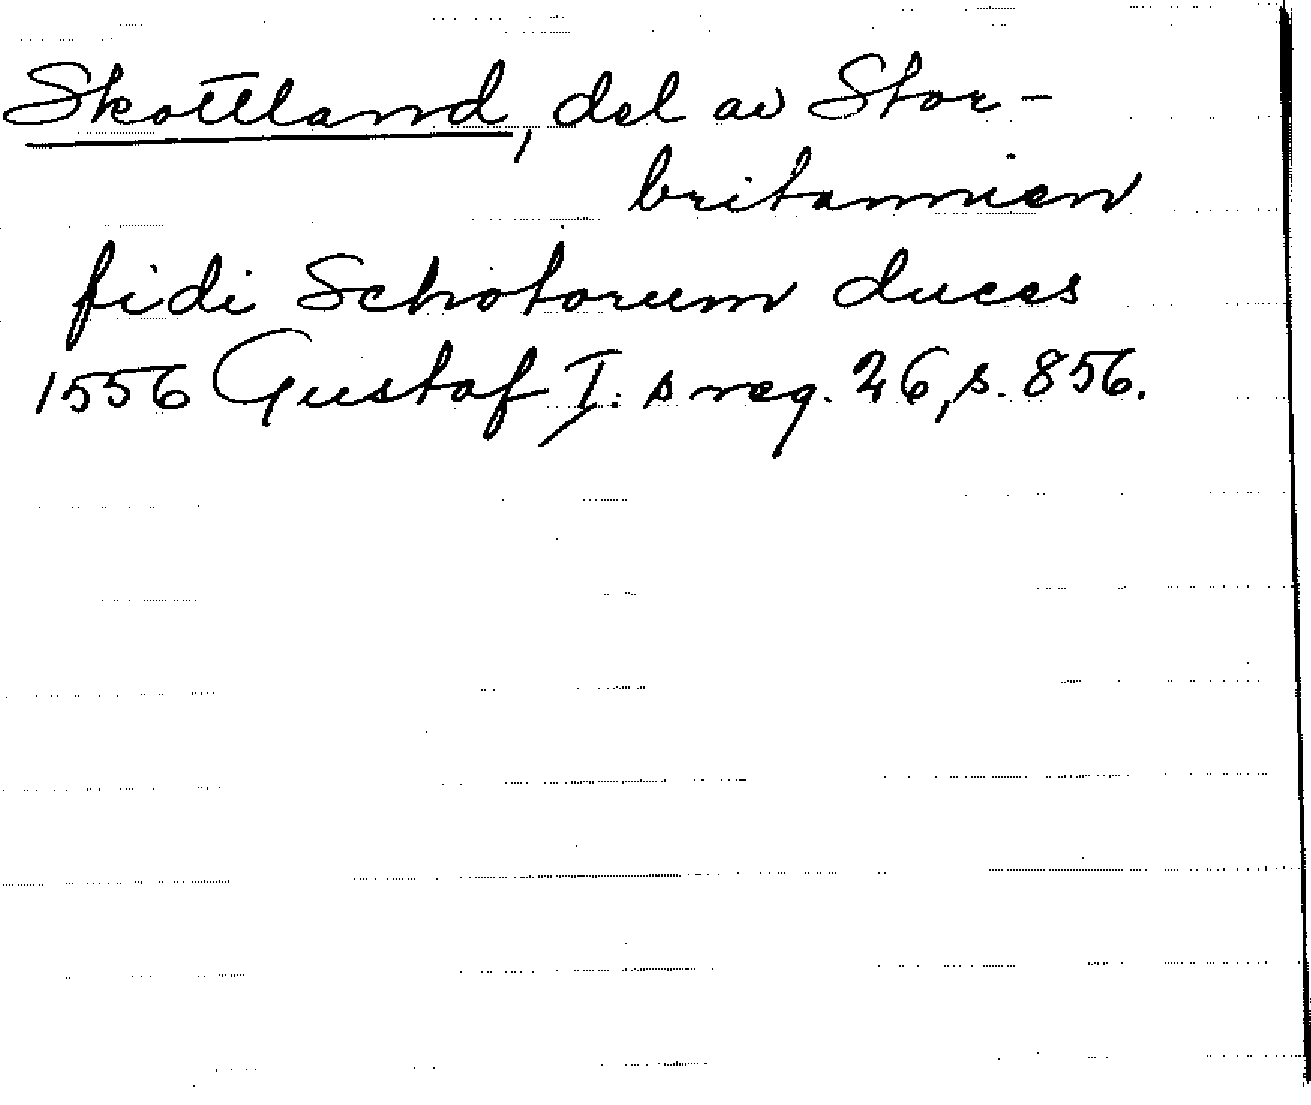 Skottland, del av Stor-
britannien
fidi Schotorum duces
1556 Gustaf I:s reg. 26, s. 856.